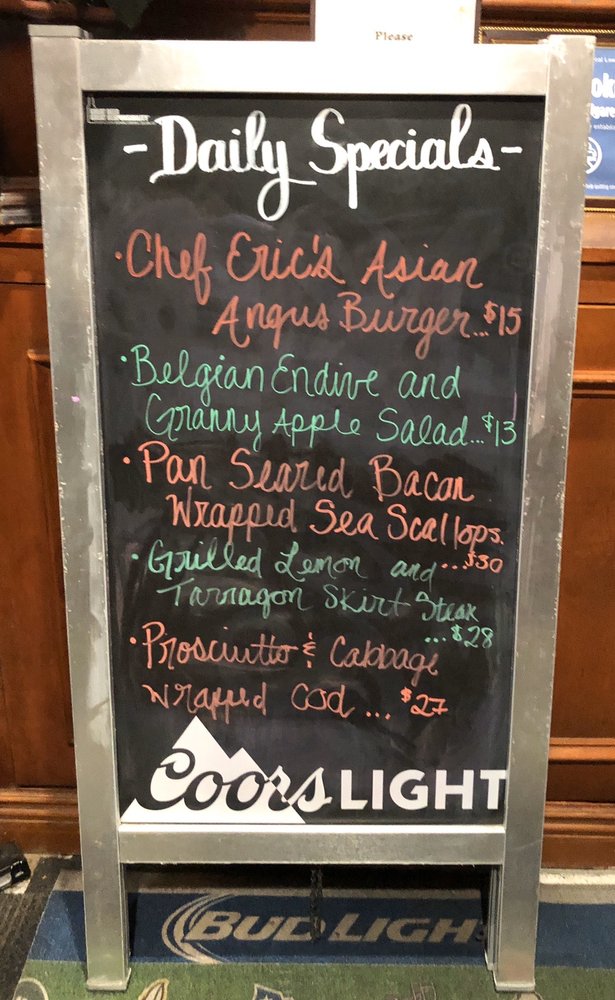 Please
-Daily Specials-
·Chef Eric's Asian
Angus Burger...$15
·Belgian Endive and
Granny Apple Salad...$13
·Pan Seared Bacon
Wrapped Sea Scallops.
...$30
·Grilled Lemon and
Tarragon Skirt Steak
...$28
·Prosciutto & Cabbage
Wrapped Cod ... $27
Coors LIGHT
BUD LIGH